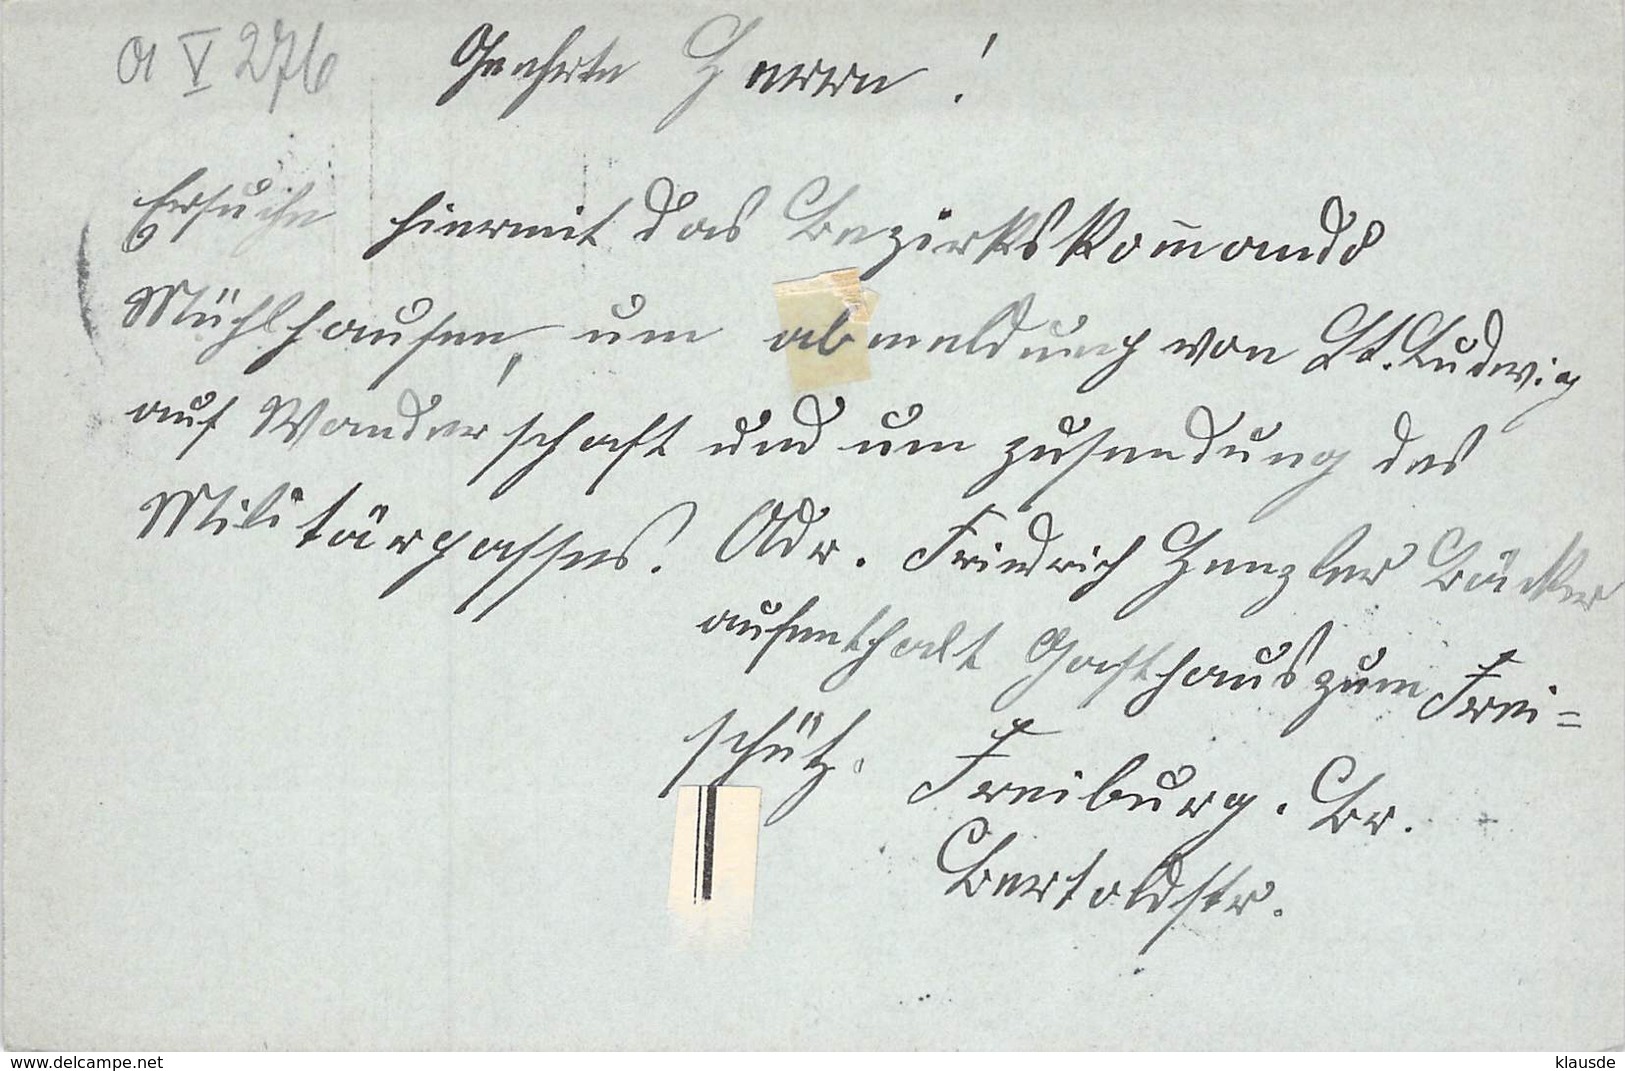 a V 276
Geehrte Herren!
Ersuche hiermit das Bezirkskom̅ando
Mühlhausen, um abmeldung von St. Ludwig
auf Wanderschaft und um zusendung des
Militärpasses. Adr. Friedrich Henzler Bäcker
aufenthalt Gasthaus zum Frei=
schütz. Freiburg. Br.
Bertoldstr.
www.delcampe.net
klausde